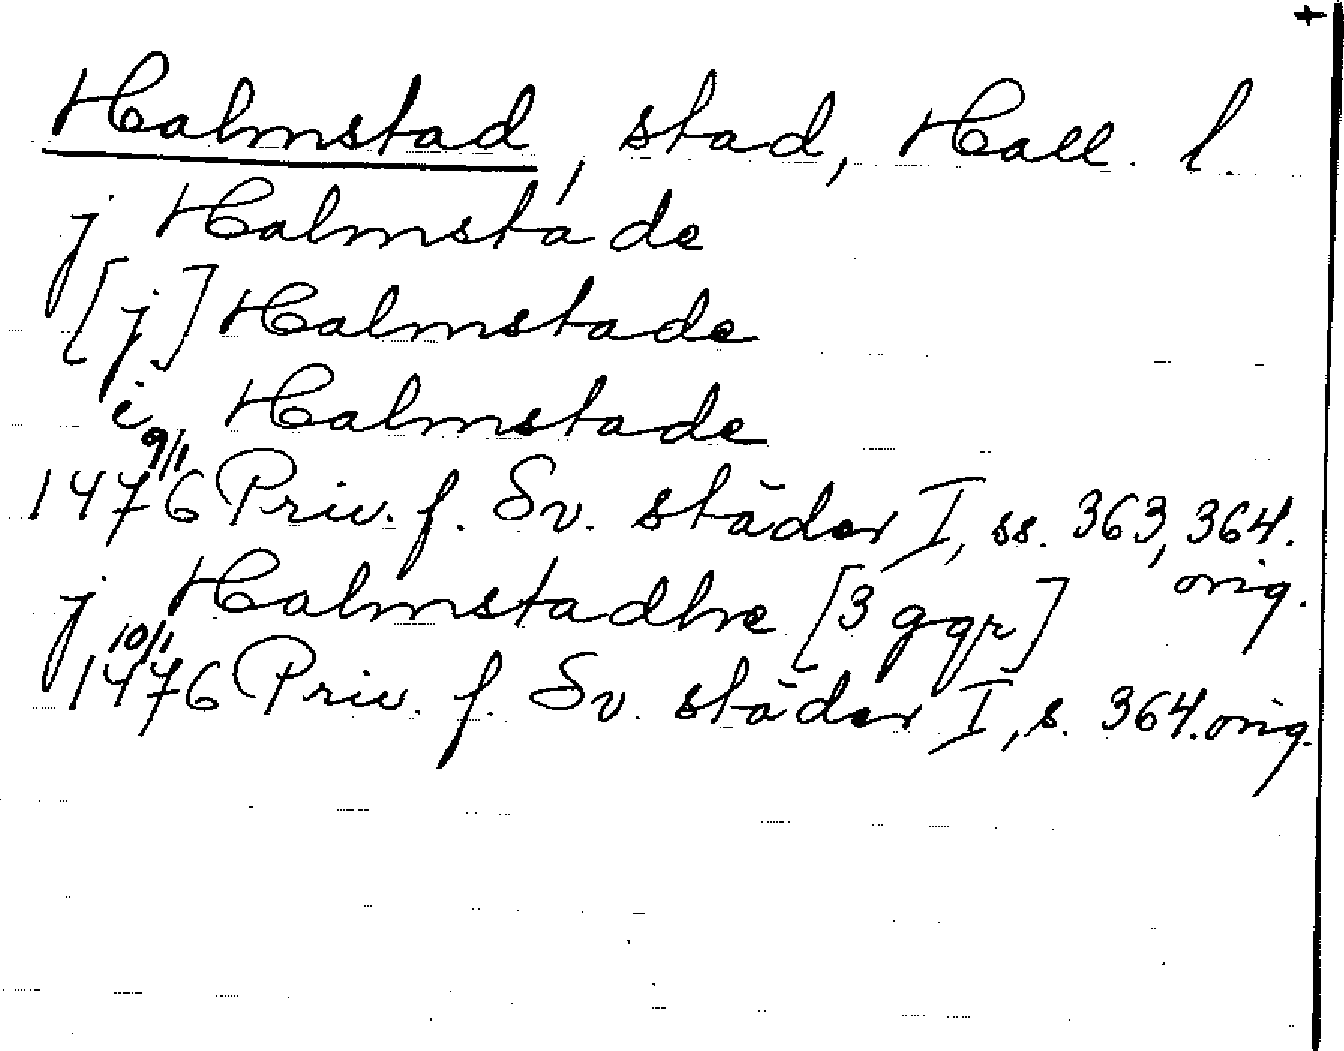 +
Halmstad, stad, Hall. l.
j Halmstade
[j] Halmstade
i Halmstade
9/1
1476 Priv. f. Sv. städer I, ss. 363, 364.
orig.
j Halmstadhe [3 ggr]
10/1
1476 Priv. f. Sv. städer I, s. 364. orig.